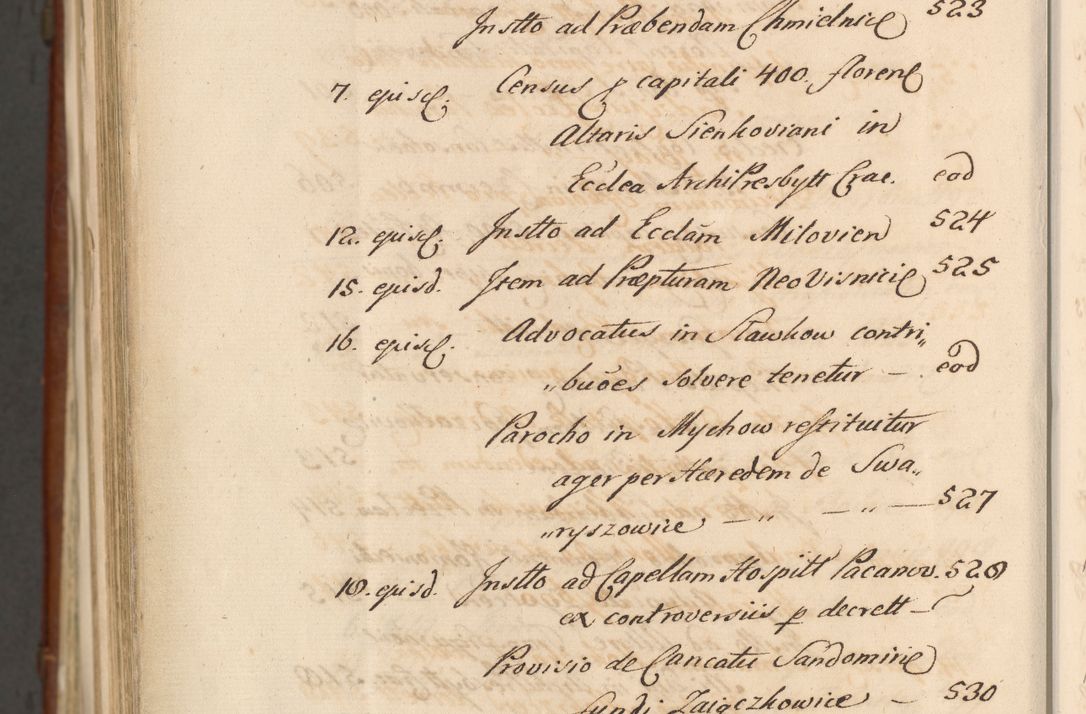 Instto ad Præbendam Chmielnice 523
7. episc. Census p capitali 400. floren
Altaris Sienkoviani in
Ecclea ArchiPresbytt Crac. eod
12. episc. Instto ad Ecclām Milovien 524
15. episd. Item ad Præpturam NeoVisnicie 525
16. episc. Advocatus in Slawkow contri„
„buões solvere tenetur — eod
Parocho in Mychow restituitur
ager per Hæredem de Swa„
„ryszowice — „ — „ — 527
18. episd. Instto ad Capellam Hospitt Pacanov. 528
ex controversiis p decrett —
Provisio de Cancatu Sandomirie
Fundi Zaiączkowice — 530